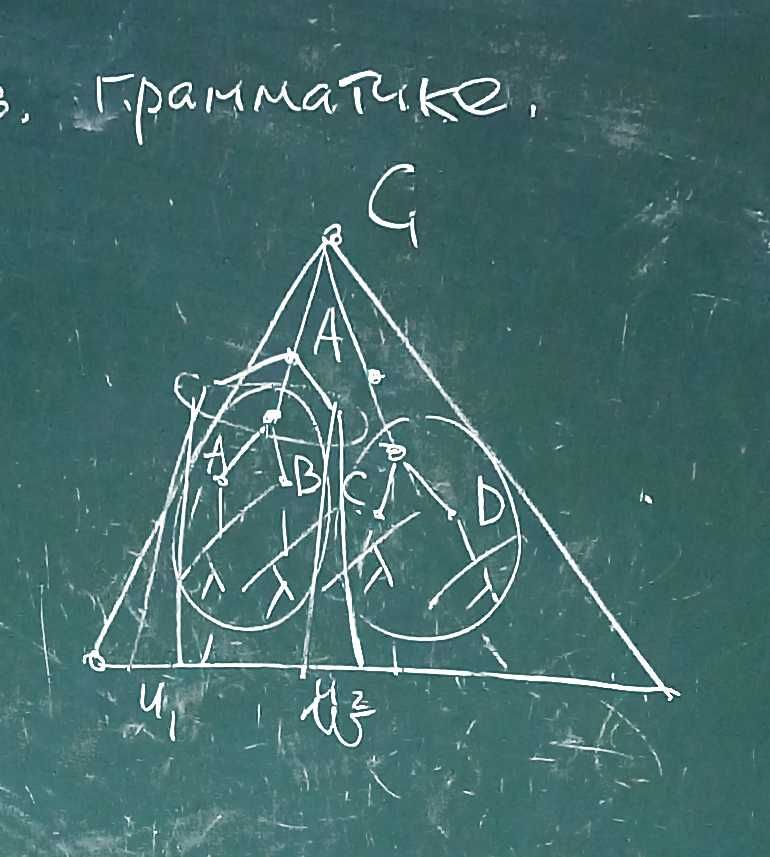 в. грамматике.
G
A
C
A B C D
λ λ λ λ
u₁